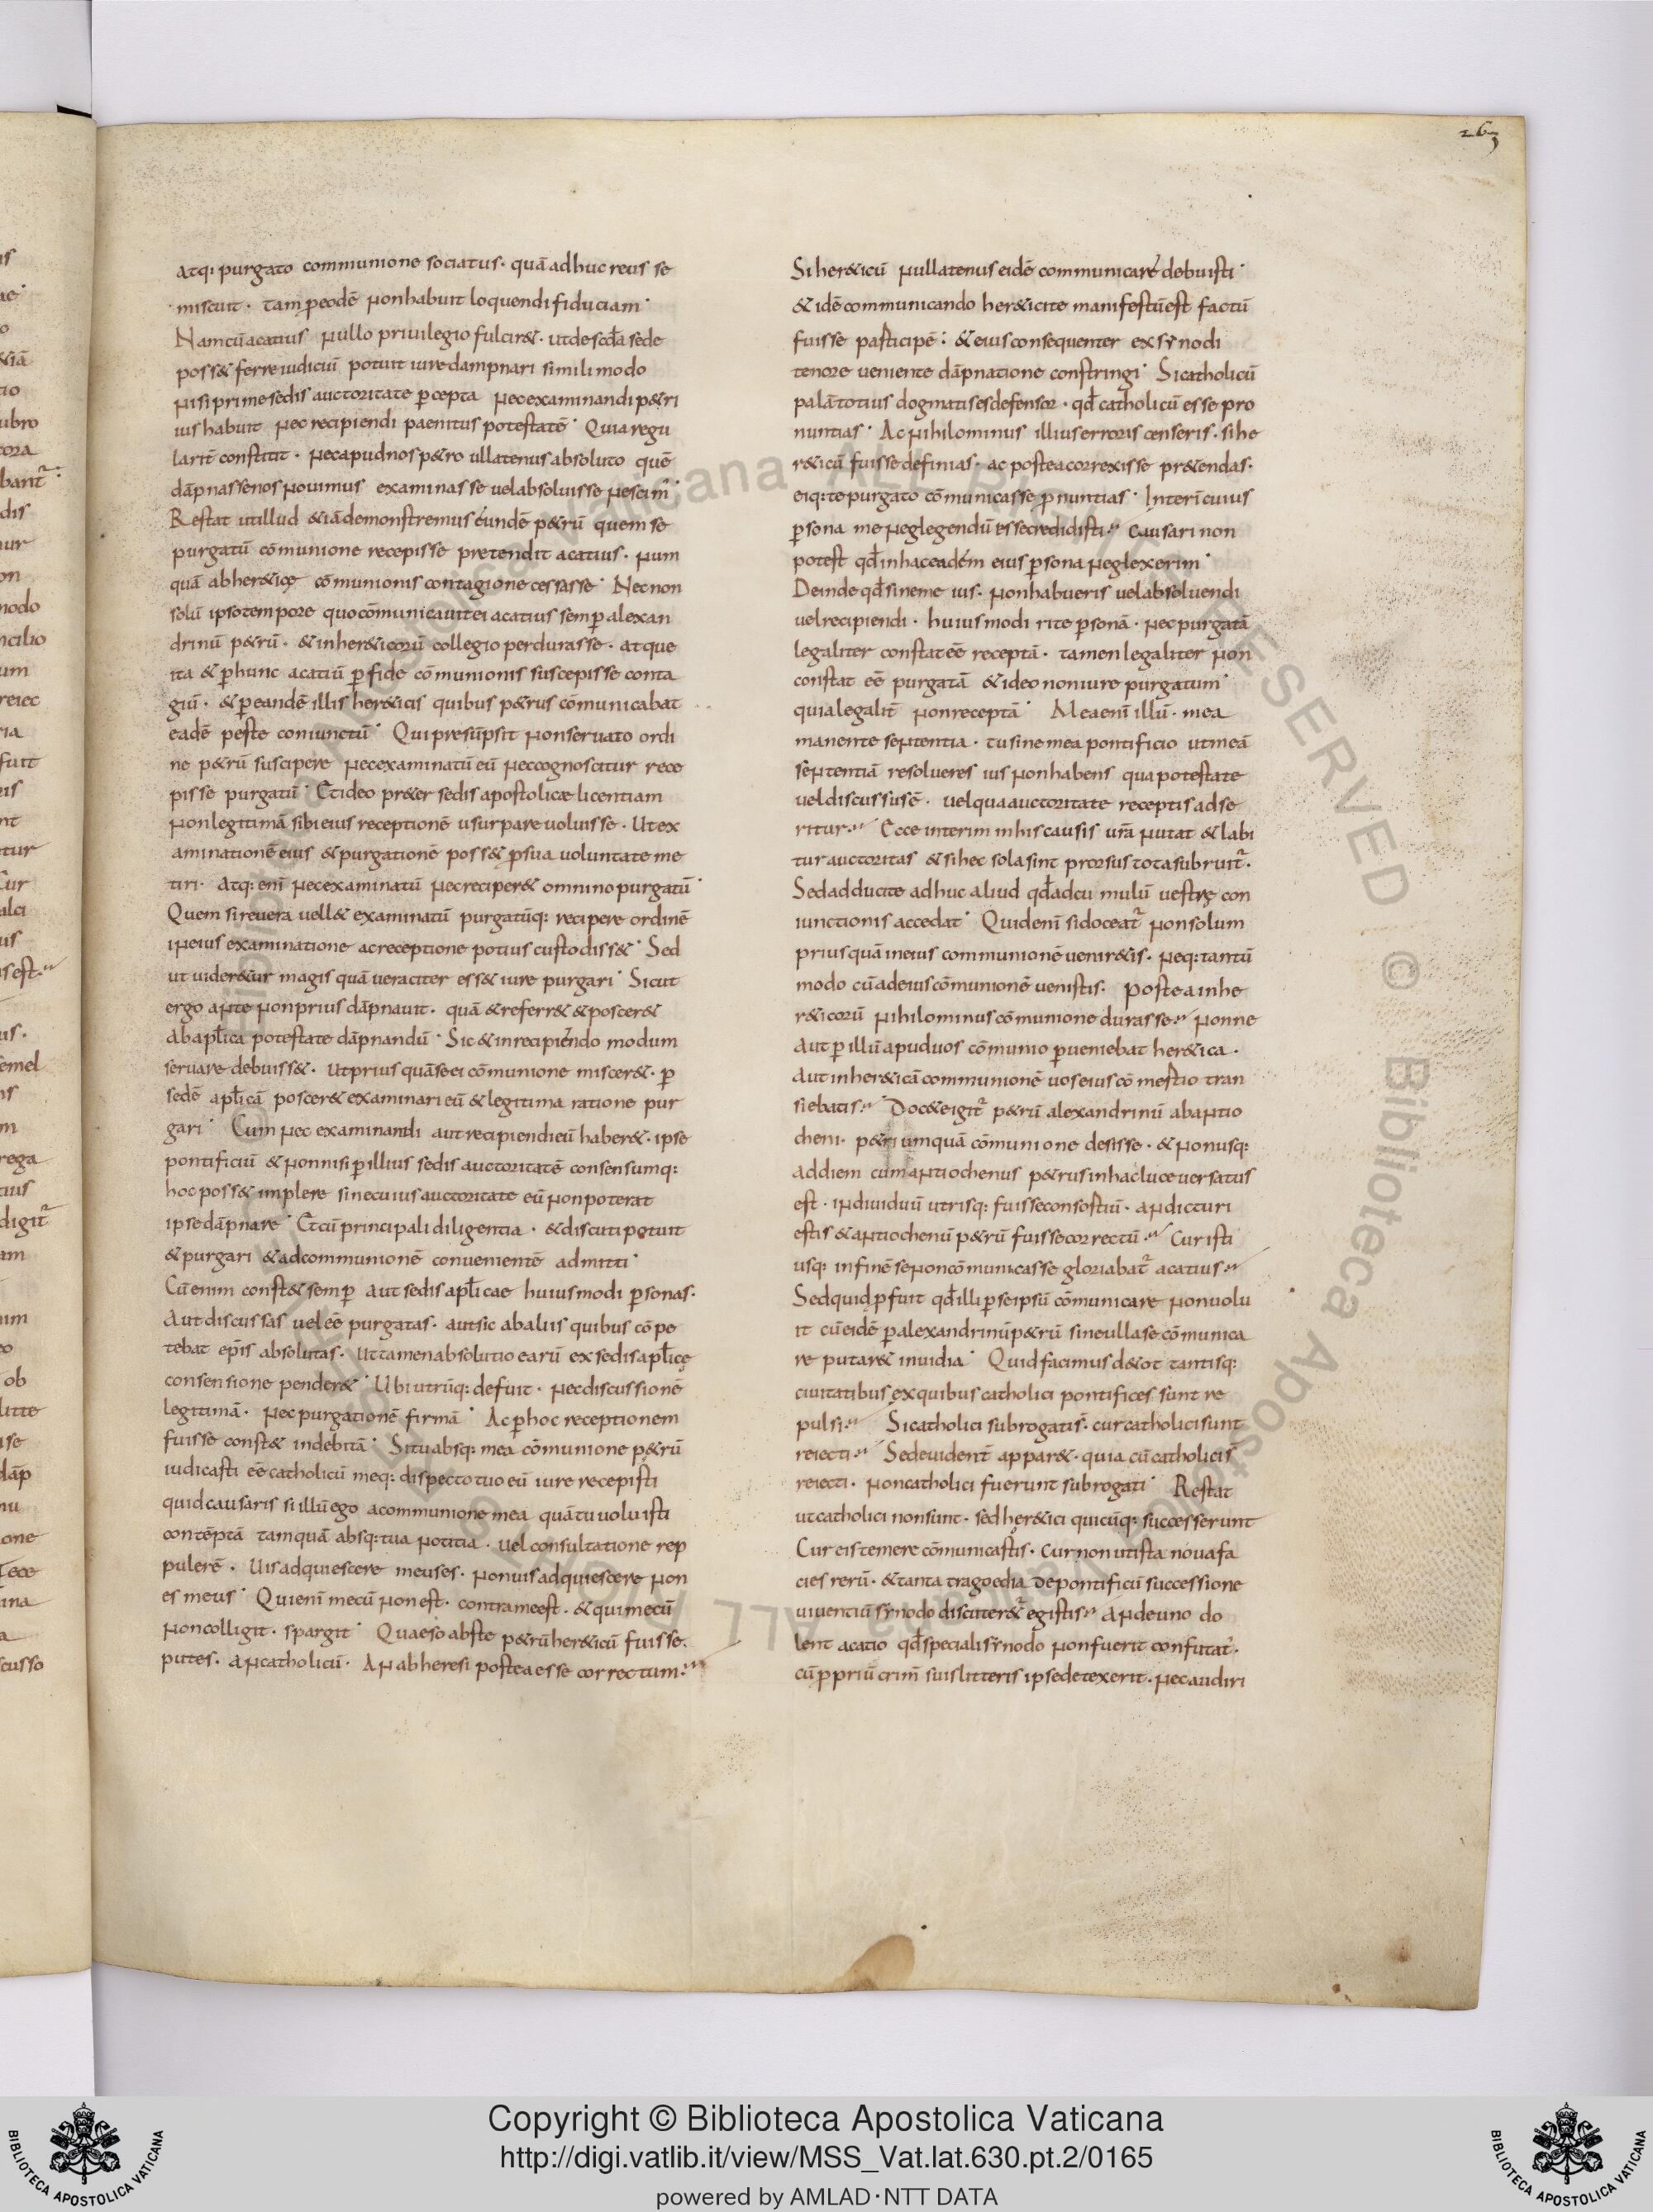 263
atq: purgato communione sociatus· quā adhuc reus se
miscuit· tam p eodē non habuit loquendi fiduciam·
Nam cū acatius nullo priuilegio fulcir&· ut de scd̄a sede
poss& ferre iudiciū potuit iure dampnari simili modo
nisi prime sedis auctoritate pcepta nec examinandi p&ri
ius habuit nec recipiendi paenitus potestatē· Quia regu
larit̄ constitit· nec apud nos p&ro ullatenus absoluto quē
dāpnasse nos nouimus examinasse uel absoluisse nescim·
Restat ut illud &iā demonstremus éundē p&rū quem se
purgatū cōmunione recepisse pretendit acatius· num
quā ab her&icę cōmunionis contagione cessasse· Nec non
solū ipso tempore quo cōmunicauit ei acatius semp alexan
drinū p&rū· & in her&icorū collegio perdurasse· atque
ita & p hunc acatiū pfide cōmunionis suscepisse conta
giū· & p eandē illis her&icis quibus p&rus cōmunicabat
eadē peste coniunctū· Qui presūpsit non seruato ordi
ne p&rū suscipere nec examinatū eū nec cognoscitur rece
pisse purgatū· Et ideo pr&er sedis apostolicae licentiam
non legitimā sibi eius receptionē usurpare uoluisse· Ut ex
aminationē eius & purgationē poss& p sua uoluntate me
tiri· atq: enī nec examinatū nec reciper& omnino purgatū·
Quem si reuera uell& examinatū purgatūq: recipere ordinē
in eius examinatione ac receptione potius custodiss&· Sed
ut uider&ur magis quā ueraciter ess& iure purgari· Sicut
ergo ante non prius dāpnauit· quā & referr& & poscer&
ab apl̄ica potestate dāpnandū· Sic & in recipiendo modum
seruare debuiss&· ut prius quā se ei cōmunione miscer&· p
sedē apl̄icā poscer& examinari eū & legitima ratione pur
gari· Cum nec examinandi aut recipiendi eū haber&· ipse
pontificiū & non nisi p illius sedis auctoritatē consensumq:
hoc poss& implere sine cuius auctoritate eū non poterat
ipse dāpnare· Et cū principali diligentia· & discuti potuit
& purgari & ad communionē conuenientē admitti·
Cū enim const& semp aut sedis apl̄icae huiusmodi psonas·
Aut discussas uel eē purgatas· aut sic ab aliis quibus cōpe
tebat ep̄is absolutas· Ut tamen absolutio earū ex sedis apl̄icę
consensione pender&· Ubi utrūq: defuit· nec discussionē
legitimā· nec purgationē firmā· Ac p hoc receptionem
fuisse const& indebitā· Si tu absq: mea cōmunione p&rū
iudicasti eē catholicū meq: dispecto tuo eū iure recepisti
quid causaris si illū ego a communione mea quā tu uoluisti
contēptā tamquā absq: tua notitia· uel consultatione rep
pulerē· Uis adquiescere meus es· non uis adquiescere non
es meus· Qui enī mecū non est· contra me est· & qui mecū
non colligit· spargit· Quaeso abs te p&rū her&icū fuisse·
putes· an catholicū· An ab heresi postea esse correctum·
Si her&icū nullatenus eidē communicare debuisti·
& idē communicando her&icite manifestū est factū
fuisse pasticipē· & eius consequenter ex synodi
tenore ueniente dāpnatione constringi· Si catholicū
palā totius dogmatis es defensor· qd̄ catholicū esse pro
nuntias· Ac nihilominus illius erroris censeris· si he
r&icū fuisse definias· ac postea correxisse pr&endas·
eiq: te purgato cōmunicasse p nuntias· Interī cuius
psona me neglegendū esse credidisti· Causari non
potest qd̄ in hac eadēm eius psona neglexerim·
Deinde qd̄ sine me ius· non habueris uel absoluendi
uel recipiendi· huiusmodi rite psonā· nec purgatā
legaliter constat eē receptā· tamen legaliter non
constat eē purgatā & ideo non iure purgatum·
quia legalit̄ non receptā· Mea enī illū· mea
manente sententia· tu sine mea pontificio ut meā
sententiā resolueres ius non habens qua potestate
uel discussus ē· uel qua auctoritate receptis adse
ritur· Ecce interim in his causis urā nutat & labi
tur auctoritas & si hec sola sint prorsus tota subruit·
Sed adducite adhuc aliud qd̄ ad cumulū uestrę con
iunctionis accedat· Quid enī si doceat non solum
prius quā in eius communionē uenir&is· neq: tantū
modo cū ad eius cōmunionē uenistis· postea in he
r&icorū nihilominus cōmunione durasse· nonne
aut p illū apud uos cōmunio pueniebat her&ica·
aut in her&icā communionē uos eius cōmestio tran
siebatis· Doc&e igit p&rū alexandrinū ab antio
cheni· p&ri umquā cōmunione desisse· & nonusq:
ad diem cum antiochenus p&rus in hac luce uersatus
est· indiuiduū utrisq: fuisse consostiū· an dicturi
estis & antiochenū p&rū fuisse correctū· Cur isti
usq: in finē se non cōmunicasse gloriabat acatius·
Sed quid pfuit qd̄ illi p se ipsū cōmunicare noluu
it cū eidē p alexandrinū p&rū sine ulla se cōmunica
re putar& inuidia· Quid facimus d& ot tantisq:
ciuitatibus ex quibus catholici pontifices sunt re
pulsi· Si catholici subrogatis· cur catholici sunt
reiecti· Sed euident̄ appar&· quia cū catholicis
reiecti· non catholici fuerunt subrogati· Restat
ut catholici non sunt· sed her&ici quicūq: successerunt
Cur eis temere cōmunicastis· cur non ut ista noua fa
cies rerū· & tanta tragoedia de pontificū successione
uiuentiū synodo discuter& egistis· An de uno do
lent acatio qd̄ speciali synodo non fuerit confutat·
cū ppriū crim̄ suis litteris ipse detexerit· nec audiri
Copyright © Biblioteca Apostolica Vaticana
http://digi.vatlib.it/view/MSS_Vat.lat.630.pt.2/0165
powered by AMLAD·NTT DATA